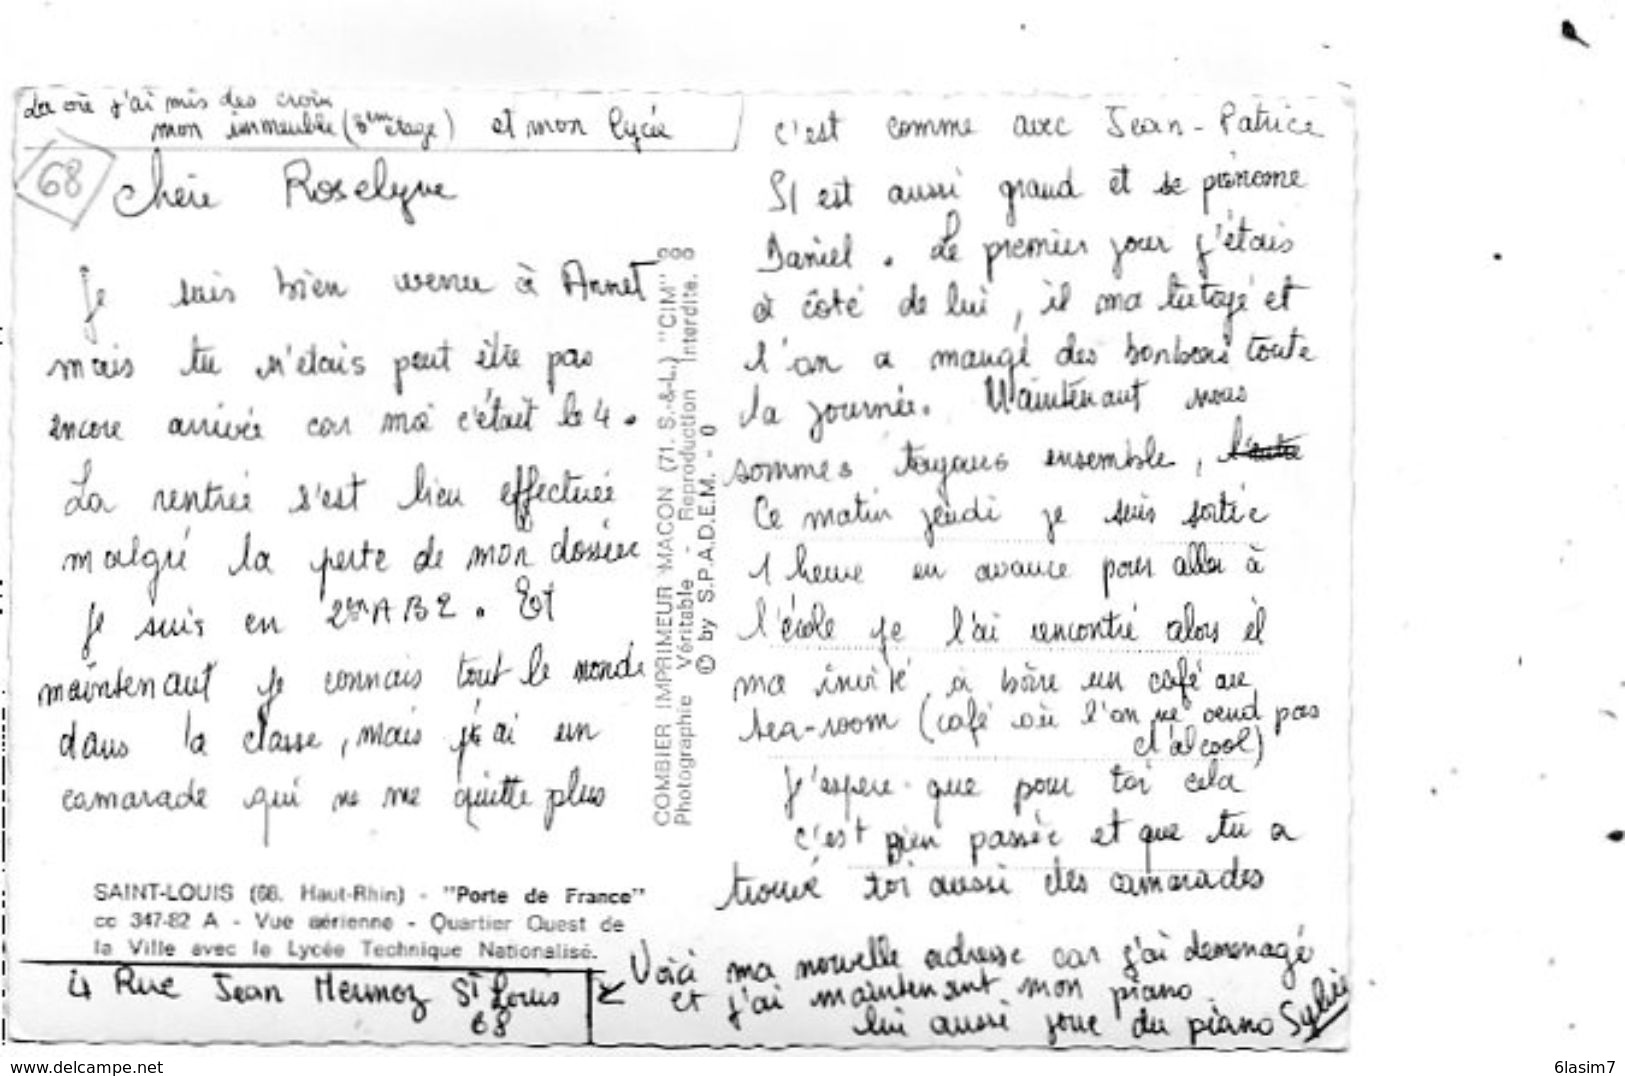 La où j'ai mis des croix
mon immeuble (3em étage) et mon lycée
68
Chère Roselyne
Je suis bien venue à Annet
mais tu n'étais peut être pas
encore arrivée car moi c'était le 4.
La rentrée s'est bien effectuée
malgré la perte de mon dossier
Je suis en 2en AB2. Et
maintenant je connais tout le monde
dans la classe, mais j'ai un
camarade qui ne me quitte plus
c'est comme avec Jean-Patrice
Il est aussi grand et se prénome
Daniel. Le premier jour j'étais
à côté de lui, il ma tutoyé et
l'on a mangé des bonbons toute
la journée. Maintenant nous
sommes toujours ensemble,
Ce matin jeudi je suis sortie
1 heure en avance pour aller à
l'école je l'ai rencontré alors il
ma invité à boire un café au
tea-room (café où l'on ne vend pas
d'alcool)
J'espere que pour toi cela
c'est bien passée et que tu a
trouvé toi aussi des camarades
Voici ma nouvelle adresse car j'ai demenagé
et j'ai maintenant mon piano
lui aussi joue du piano Sylvie
COMBIER IMPRIMEUR MACON (71. S.-&-L.) "CIM"
Photographie Véritable - Reproduction Interdite.
© by S.P.A.D.E.M. - 0
SAINT-LOUIS (68. Haut-Rhin) - "Porte de France"
cc 347-82 A - Vue aérienne - Quartier Ouest de
la Ville avec le Lycée Technique Nationalisé.
4 Rue Jean Mermoz St Louis
68
www.delcampe.net
6lasim7